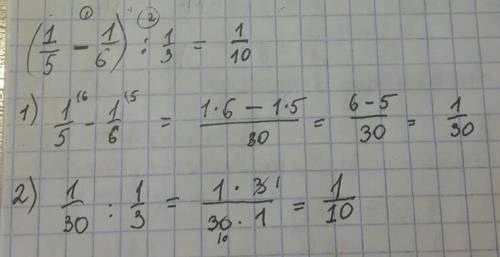 (1/5 -① 1/6) :② 1/3 = 1/10
1) 1/5⁽⁶ - 1/6⁽⁵ = (1·6 - 1·5)/30 = (6-5)/30 = 1/30
2) 1/30 : 1/3 = (1 · 3 1)/(30 10 · 1) = 1/10